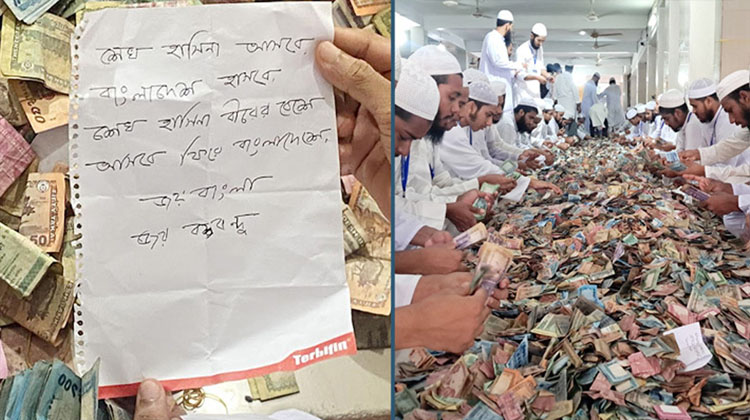 শেখ হাসিনা আসবে,
বাংলাদেশ হাসবে,
শেখ হাসিনা বীরের বেশে
আসবে ফিরে বাংলাদেশে,
জয় বাংলা
জয় বঙ্গবন্ধু
Terbifin
50